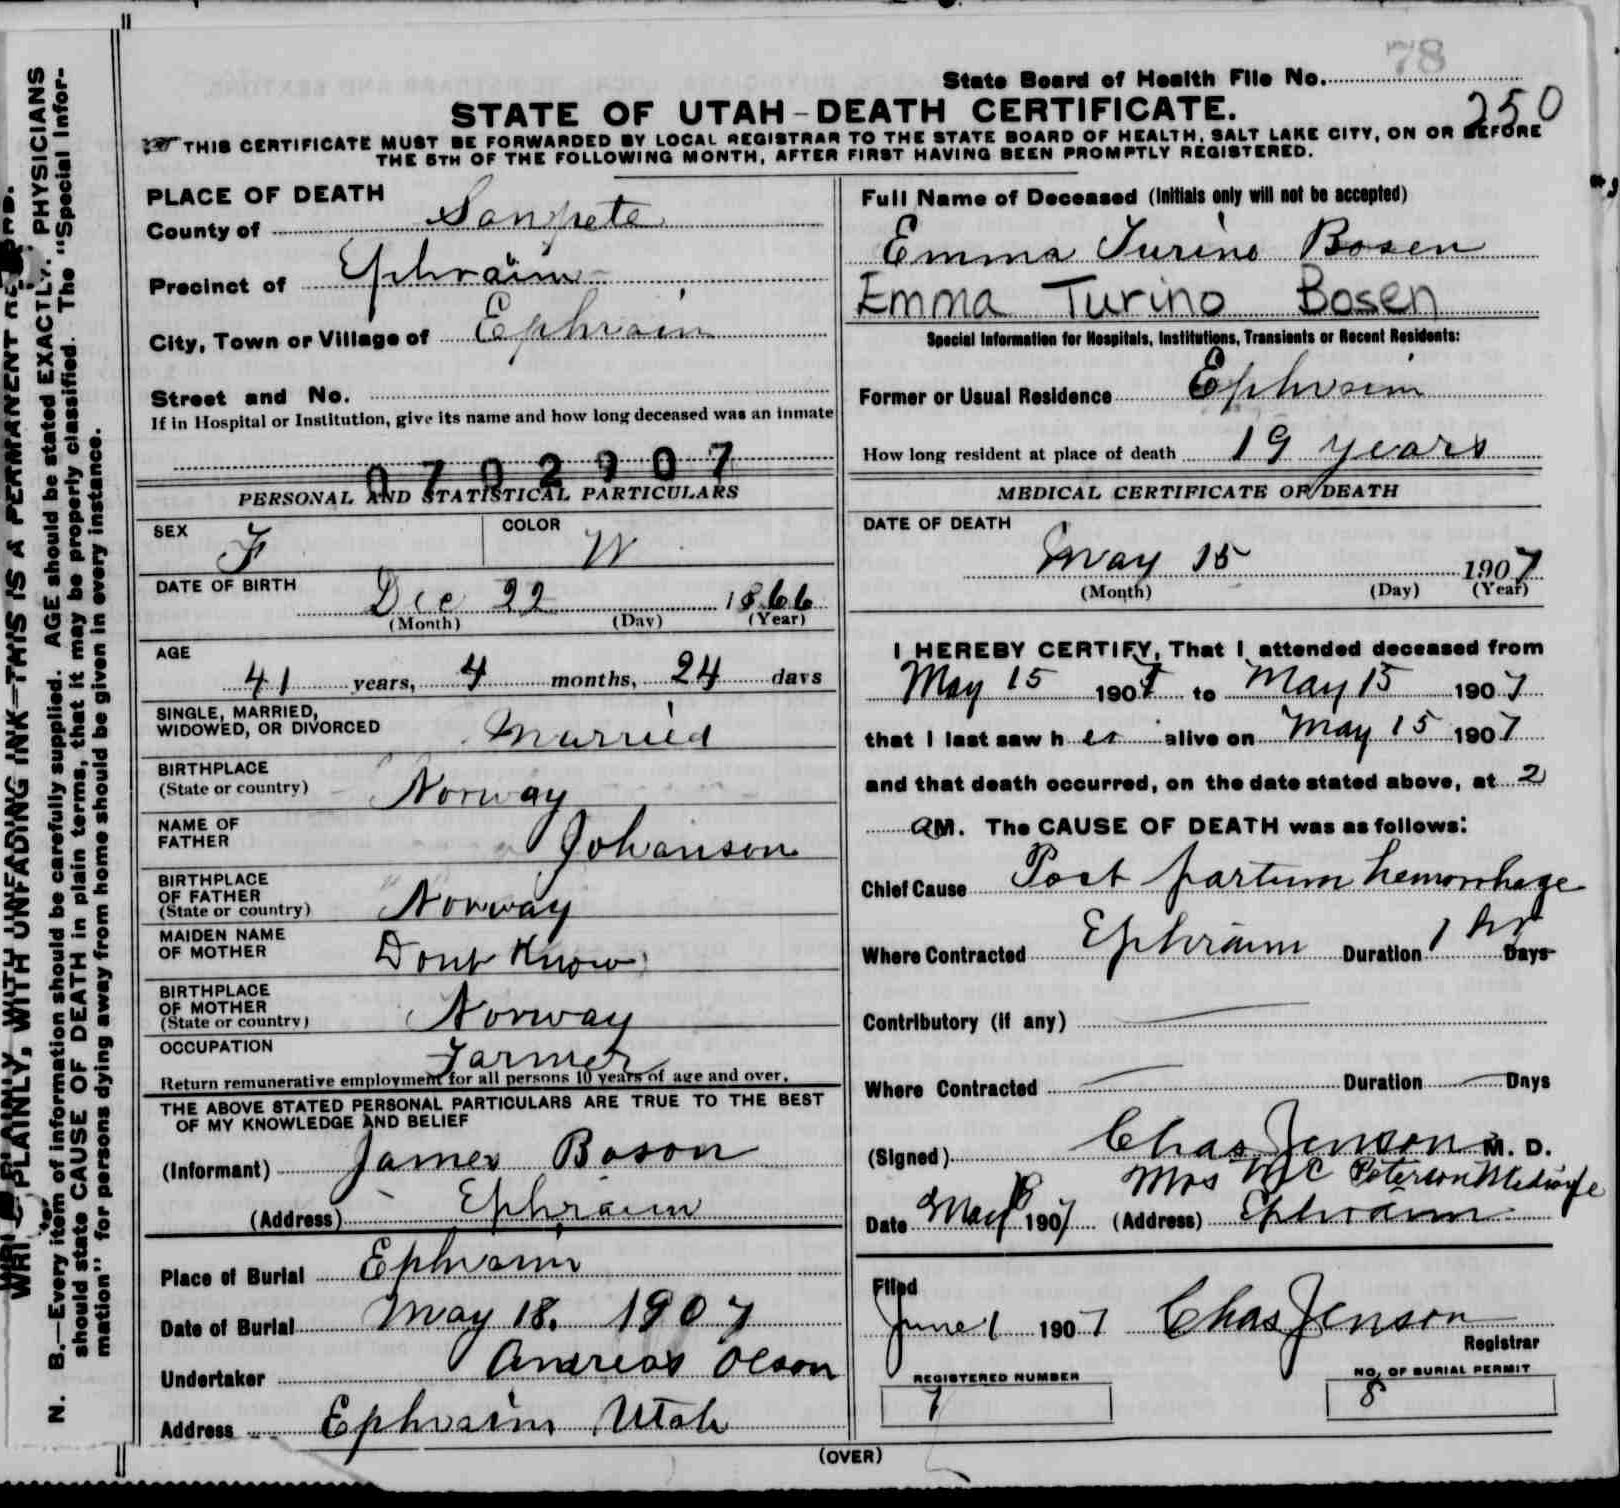 78
State Board of Health File No.
STATE OF UTAH-DEATH CERTIFICATE.
250
THIS CERTIFICATE MUST BE FORWARDED BY LOCAL REGISTRAR TO THE STATE BOARD OF HEALTH, SALT LAKE CITY, ON OR BEFORE
THE 5TH OF THE FOLLOWING MONTH, AFTER FIRST HAVING BEEN PROMPTLY REGISTERED.
PLACE OF DEATH
County of Sanpete
Precinct of Ephraim
City, Town or Village of Ephraim
Street and No.
If in Hospital or Institution, give its name and how long deceased was an inmate
0702907
PERSONAL AND STATISTICAL PARTICULARS
SEX F COLOR W
DATE OF BIRTH Dec 22 1866
(Month) (Day) (Year)
AGE 41 years, 4 months, 24 days
SINGLE, MARRIED,
WIDOWED, OR DIVORCED Married
BIRTHPLACE
(State or country) Norway
NAME OF
FATHER Johanson
BIRTHPLACE
OF FATHER
(State or country) Norway
MAIDEN NAME
OF MOTHER Dont Know
BIRTHPLACE
OF MOTHER
(State or country) Norway
OCCUPATION Farmer
Return remunerative employment for all persons 10 years of age and over.
THE ABOVE STATED PERSONAL PARTICULARS ARE TRUE TO THE BEST
OF MY KNOWLEDGE AND BELIEF
(Informant) James Boson
(Address) Ephraim
Place of Burial Ephraim
Date of Burial May 18. 1907
Undertaker Andreas Olson
Address Ephraim Utah
Full Name of Deceased (Initials only will not be accepted)
Emma Turino Bosen
Emma Turino Bosen
Special Information for Hospitals, Institutions, Transients or Recent Residents:
Former or Usual Residence Ephraim
How long resident at place of death 19 years
MEDICAL CERTIFICATE OF DEATH
DATE OF DEATH
May 15 1907
(Month) (Day) (Year)
I HEREBY CERTIFY, That I attended deceased from
May 15 1907 to May 15 1907
that I last saw her alive on May 15 1907
and that death occurred, on the date stated above, at 2
aM. The CAUSE OF DEATH was as follows:
Chief Cause Post partum hemorrhage
Where Contracted Ephraim Duration 1 hr Days
Contributory (if any)
Where Contracted Duration Days
(Signed) Chas Jenson M. D.
Mrs M C Peterson Midwife
Date May 1907 (Address) Ephraim
Filed
June 1 1907 Chas Jenson
Registrar
REGISTERED NUMBER
7
NO. OF BURIAL PERMIT
8
(OVER)
WRITE PLAINLY, WITH UNFADING INK—THIS IS A PERMANENT
N. B.—Every item of information should be carefully supplied. AGE should be stated EXACTLY. PHYSICIANS
should state CAUSE OF DEATH in plain terms, that it may be properly classified. The "Special Infor-
mation" for persons dying away from home should be given in every instance.